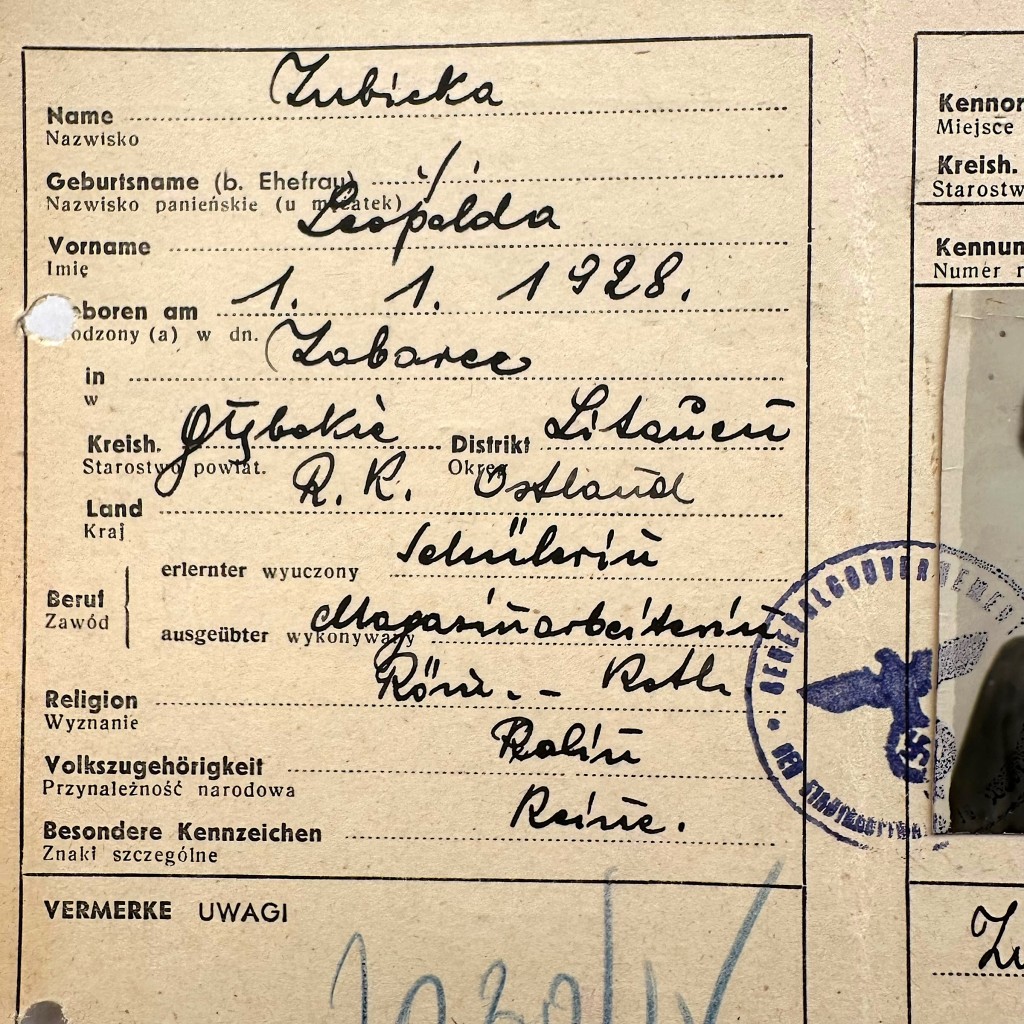 Name Zubicka
Nazwisko
Geburtsname (b. Ehefrau) ./.
Nazwisko panieńskie (u mężatek)
Vorname Leopolda
Imię
Geboren am 1. 1. 1928.
Urodzony (a) w dn.
in Zabarce
w
Kreish. Głębokie Distrikt Litauen
Starostwo powiat. Okręg
Land R. K. Ostland
Kraj
Beruf erlernter wyuczony Schülerin
Zawód ausgeübter wykonywany Magasinarbeiterin
Religion Röm. - Kath.
Wyznanie
Volkszugehörigkeit Polin
Przynależność narodowa
Besondere Kennzeichen Keine.
Znaki szczególne
VERMERKE UWAGI
Kennor
Miejsce
Kreish.
Starostw
Kennum
Numer r
GENERALGOUVERNEMENT
Zu